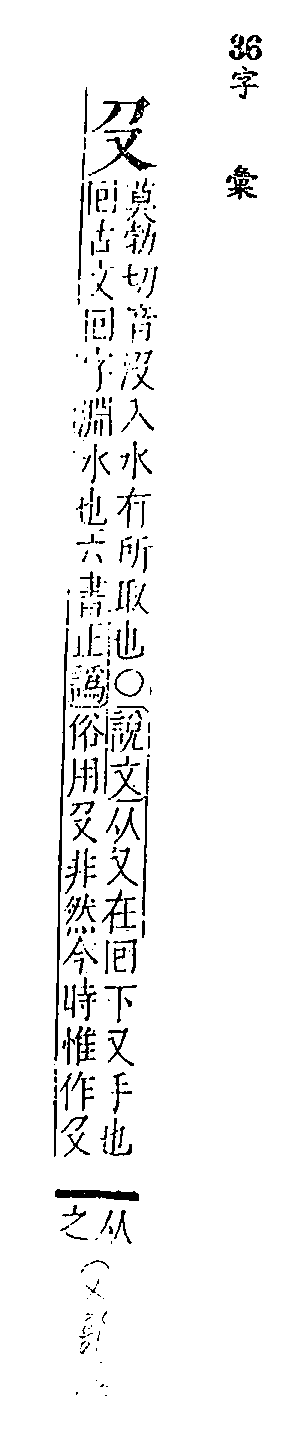 36
字彙
𠬛
莫勃切音没入水有所取也〇說文从又在囘下又手也
囘古文回字淵水也六書正譌俗用𠬛非然今時惟作殳
从
之